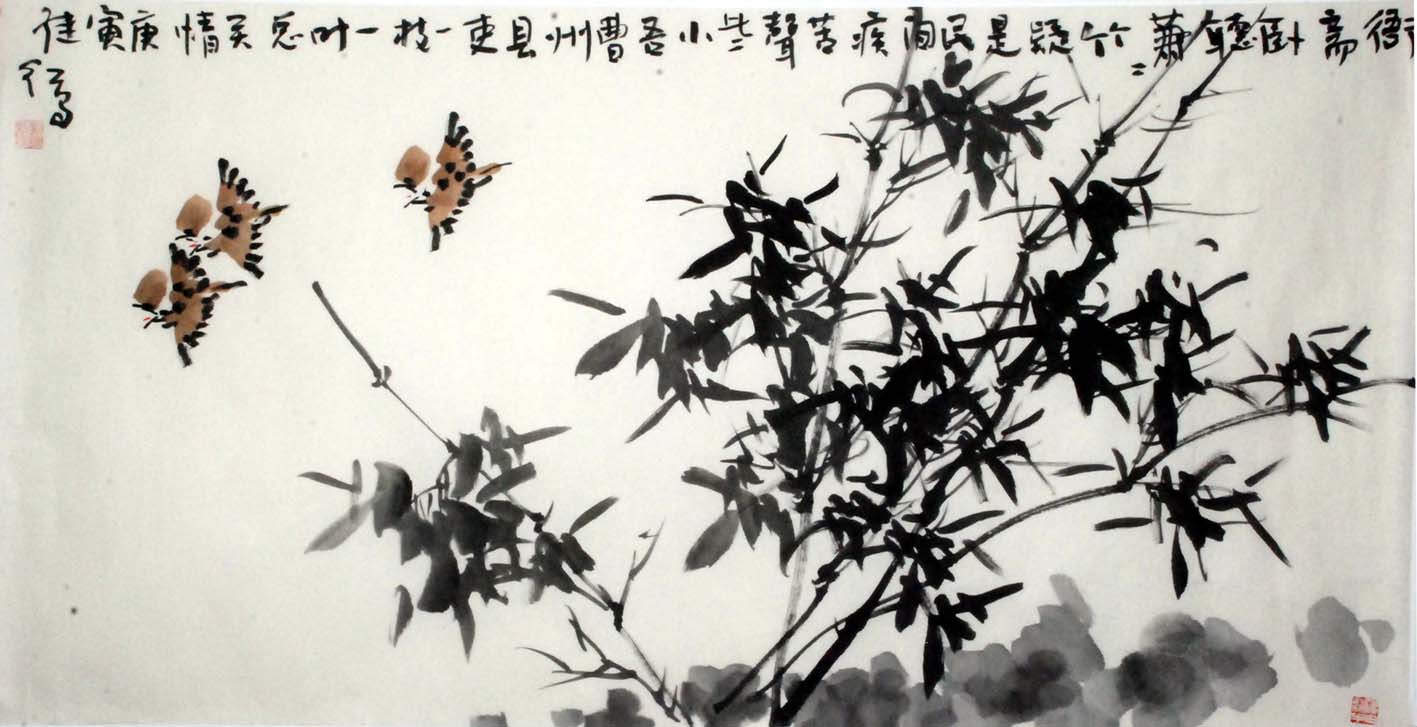 衙斋卧聽蕭〻竹疑是民间疾苦聲些小吾曹州县吏一枝一叶总关情庚寅